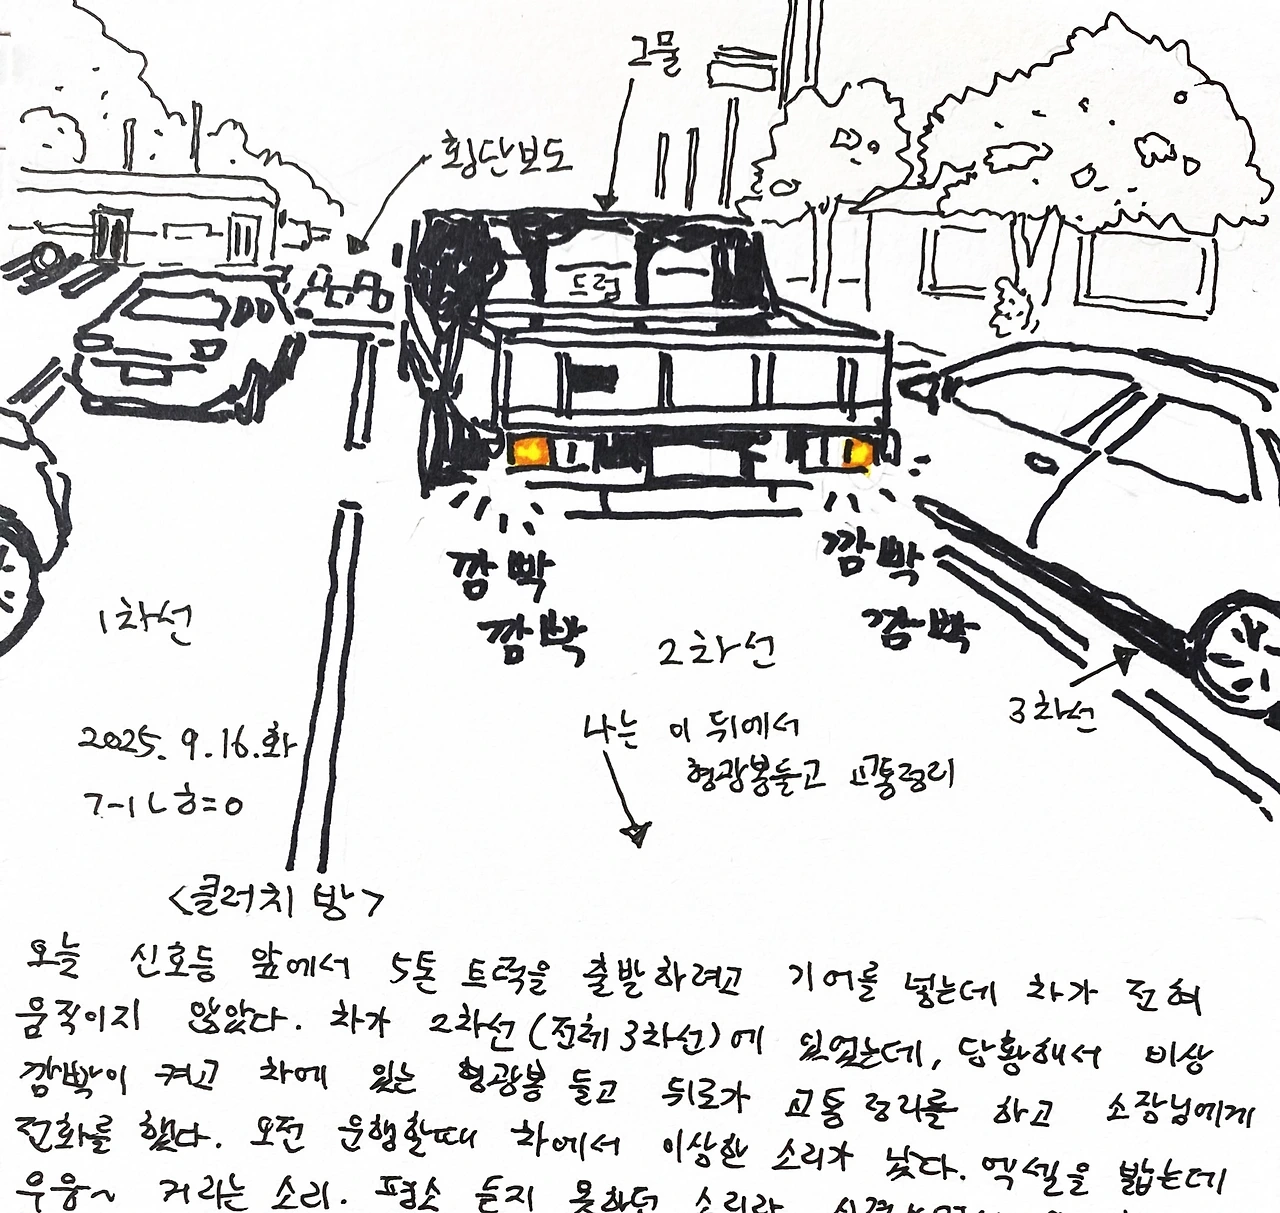 그물
횡단보도
드럼
깜빡
깜빡
깜박
깜박
1차선
2차선
3차선
나는 이 뒤에서
형광봉들고 교통정리
2025. 9. 16. 화
<클러치 방>
오늘 신호등 앞에서 5톤 트럭을 출발하려고 기어를 넣는데 차가 전혀
움직이지 않았다. 차가 2차선(전체 3차선)에 있었는데, 당황해서 비상
깜박이 켜고 차에 있는 형광봉 들고 뒤로가 교통 정리를 하고 소장님에게
전화를 했다. 오전 운행할때 차에서 이상한 소리가 났다. 엑셀을 밟는데
우웅~ 거리는 소리. 평소 듣지 못하던 소리라